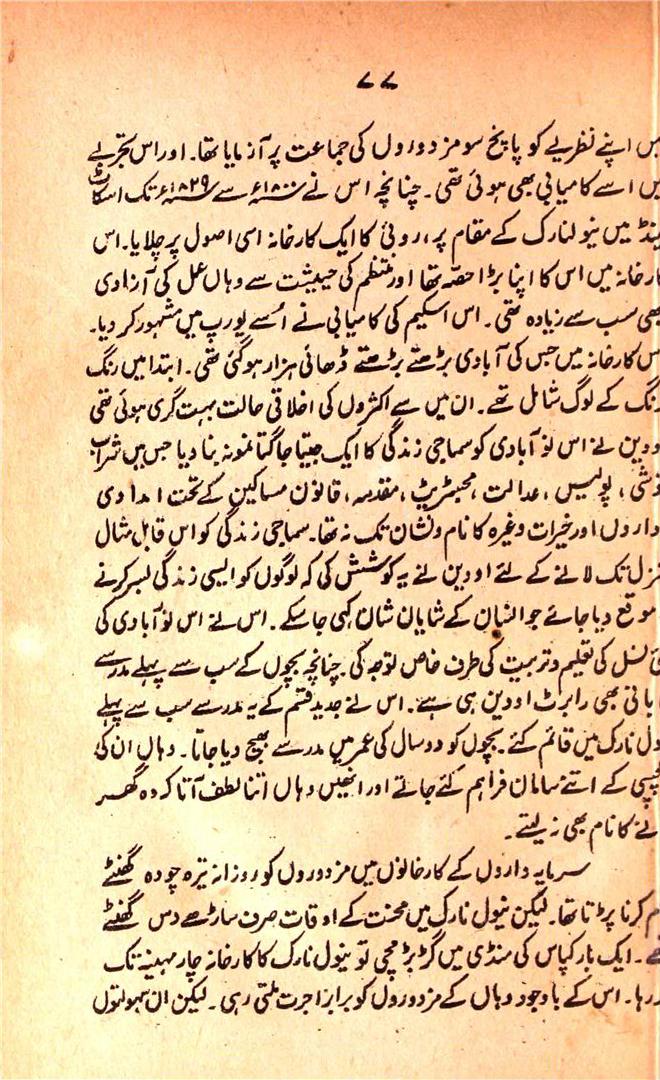 ۷۷
اپنے نظریے کو پانچ سو مزدوروں کی جماعت پر آزمایا تھا۔ اور اس تجربے
اسے کامیابی بھی ہوئی تھی۔ چنانچہ اس نے ۱۸۰۰ء سے ۱۸۲۹ء تک اسکاٹ
میں نیو لنارک کے مقام پر، روئی کا ایک کارخانہ اسی اصول پر چلایا۔ اس
میں اس کا اپنا بڑا حصہ تھا اور منتظم کی حیثیت سے وہاں عمل کی آزادی
سب سے زیادہ تھی۔ اس اسکیم کی کامیابی نے اُسے یورپ میں مشہور کر دیا۔
کارخانہ میں جس کی آبادی بڑھتے بڑھتے ڈھائی ہزار ہو گئی تھی۔ ابتدا میں رنگ
کے لوگ شامل تھے۔ ان میں سے اکثروں کی اخلاقی حالت بہت گری ہوئی تھی
نے اس نو آبادی کو سماجی زندگی کا ایک جیتا جاگتا نمونہ بنا دیا جس میں شراب
پولیس، عدالت، مجسٹریٹ، مقدمہ، قانون مساکین کے تحت امدادی
داروں اور خیرات وغیرہ کا نام و نشان تک نہ تھا۔ سماجی زندگی کو اس قابل مثال
تک لانے کے لئے اووین نے یہ کوشش کی کہ لوگوں کو ایسی زندگی بسر کرنے
موقع دیا جائے جو انسان کے شایان شان کہی جا سکے۔ اس نے اس نو آبادی کی
نسل کی تعلیم و تربیت کی طرف خاص توجہ کی۔ چنانچہ بچوں کے سب سے پہلے مدرسے
بانی بھی رابرٹ اووین ہی ہے۔ اس نے جدید قسم کے یہ مدرسے سب سے پہلے
نارک میں قائم کئے۔ بچوں کو دو سال کی عمر میں مدرسے بھیج دیا جاتا۔ وہاں ان کی
کے اتنے سامان فراہم کئے جاتے اور انھیں وہاں اتنا لطف آتا کہ وہ گھر
کا نام بھی نہ لیتے۔
سرمایہ داروں کے کارخانوں میں مزدوروں کو روزانہ تیرہ چودہ گھنٹے
کرنا پڑتا تھا۔ لیکن نیول نارک میں محنت کے اوقات صرف ساڑھے دس گھنٹے
ایک بار کپاس کی منڈی میں گڑبڑ مچی تو نیول نارک کا کارخانہ چار مہینہ تک
رہا۔ اس کے باوجود وہاں کے مزدوروں کو برابر اجرت ملتی رہی۔ لیکن ان سہولتوں